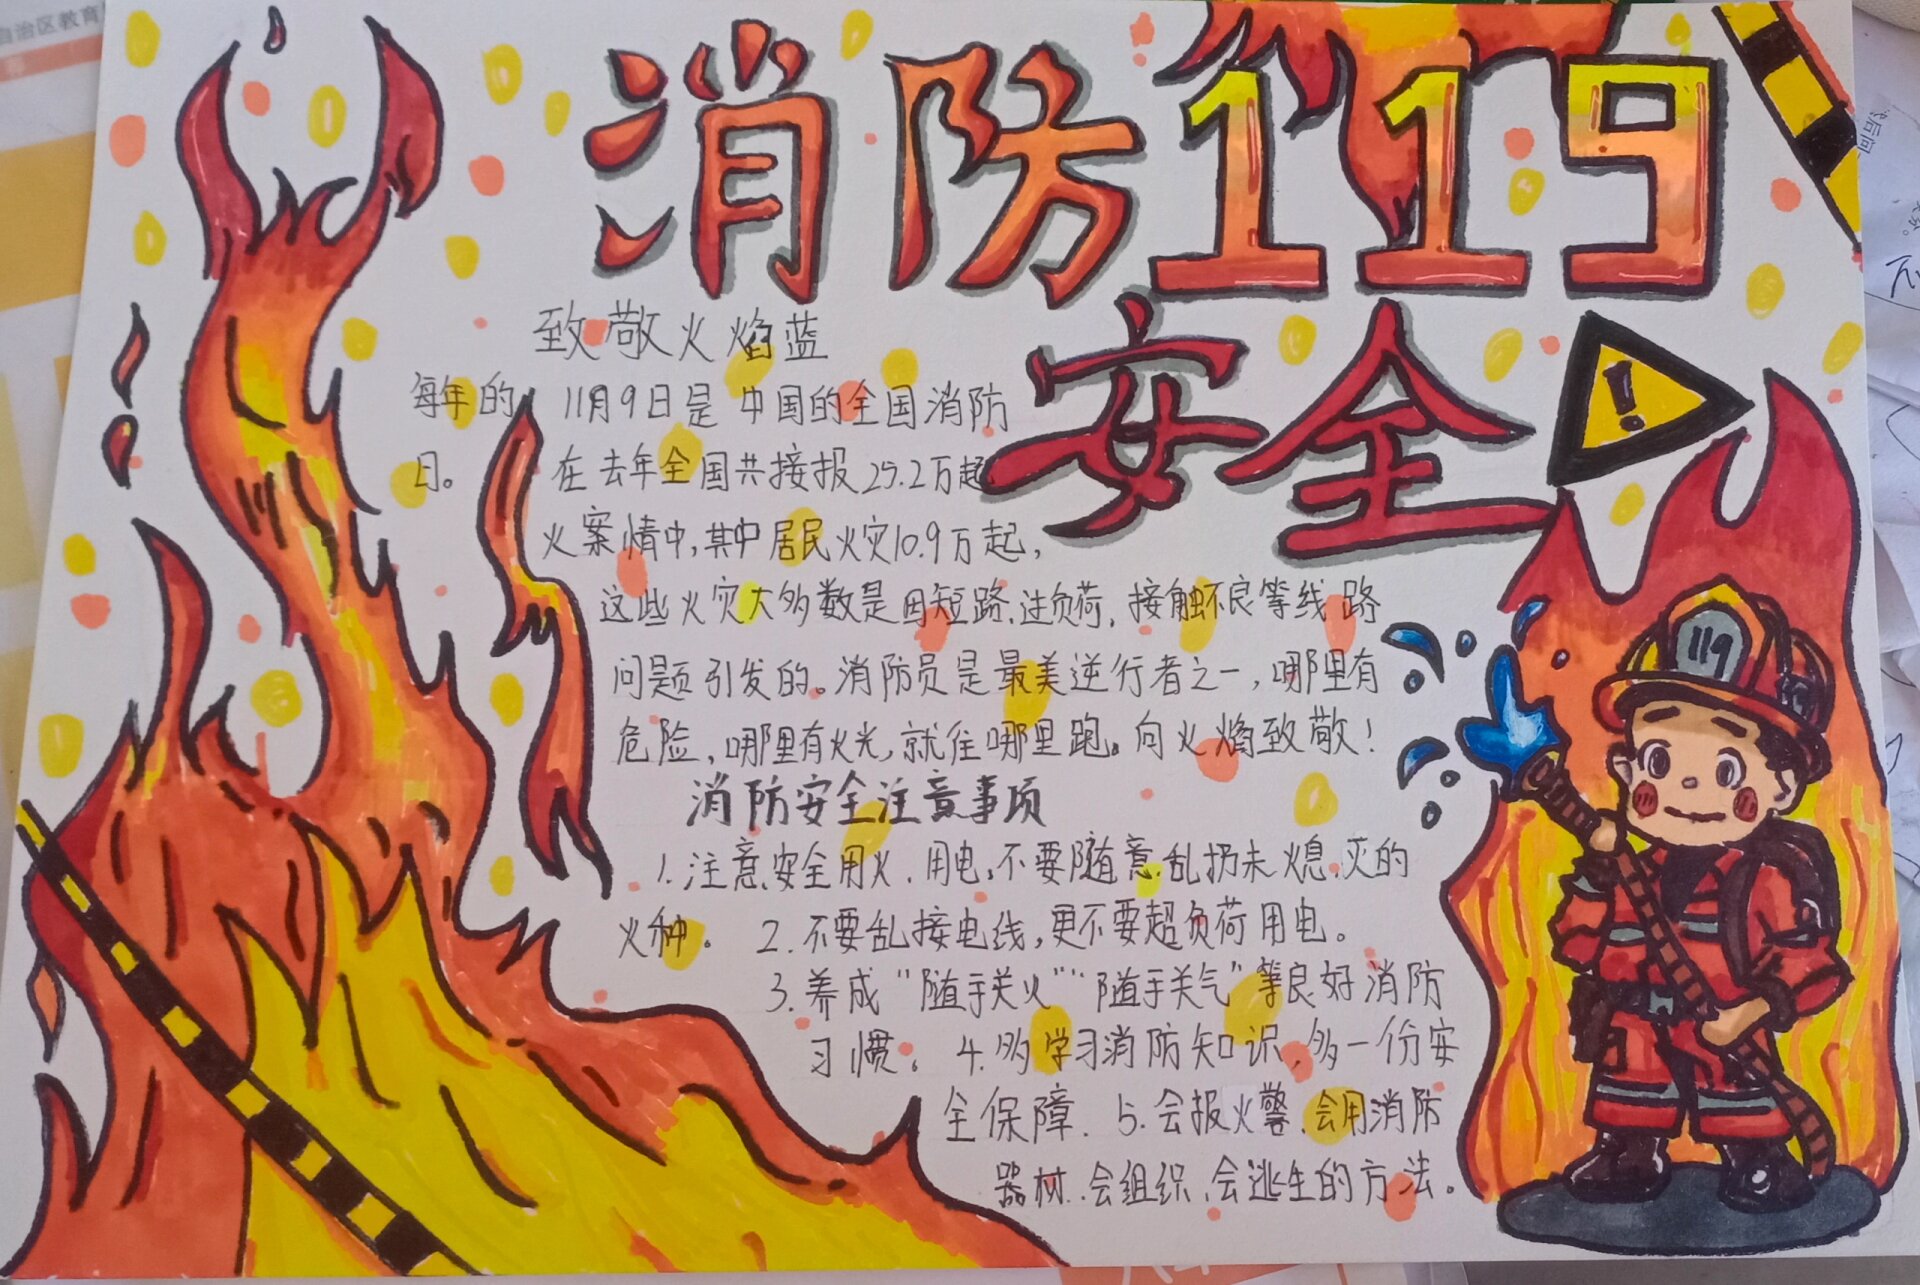 自治区教育
消防119
安全
致敬火焰蓝
每年的 11月9日是中国的全国消防
日。 在去年全国共接报25.2万起
火案情中,其中居民火灾10.9万起,
这些火灾大多数是因短路、过负荷,接触不良等线路
问题引发的。消防员是最美逆行者之一,哪里有
危险,哪里有火光,就往哪里跑。向火焰致敬!
消防安全注意事项
1.注意安全用火、用电,不要随意乱扔未熄灭的
火种。 2.不要乱接电线,更不要超负荷用电。
3.养成“随手关火”“随手关气”等良好消防
习惯。 4.多学习消防知识,多一份安
全保障. 5.会报火警、会用消防
器材、会组织、会逃生的方法。
119